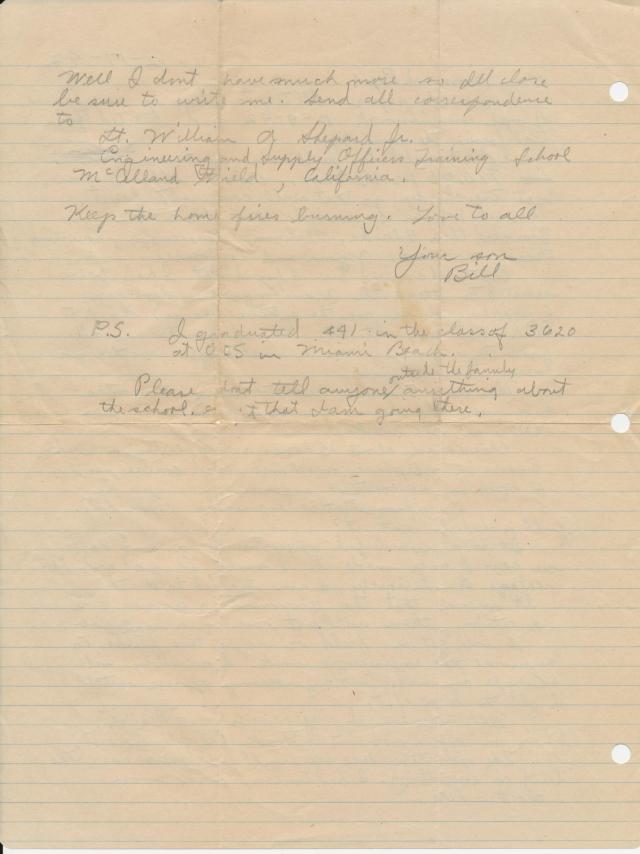 Well I dont have much more so Ill close
be sure to write me. Send all correspondence
to
Lt. William G Shepard Jr.
Engineering and Supply Officers Training School
McClelland Field, California.
Keep the home fires burning. Love to all
Your son
Bill
P.S. I graduated 441 in the class of 3620
at OCS in Miami Beach.
outside the family
Please dont tell anyone anything about
the school. that I am going there.